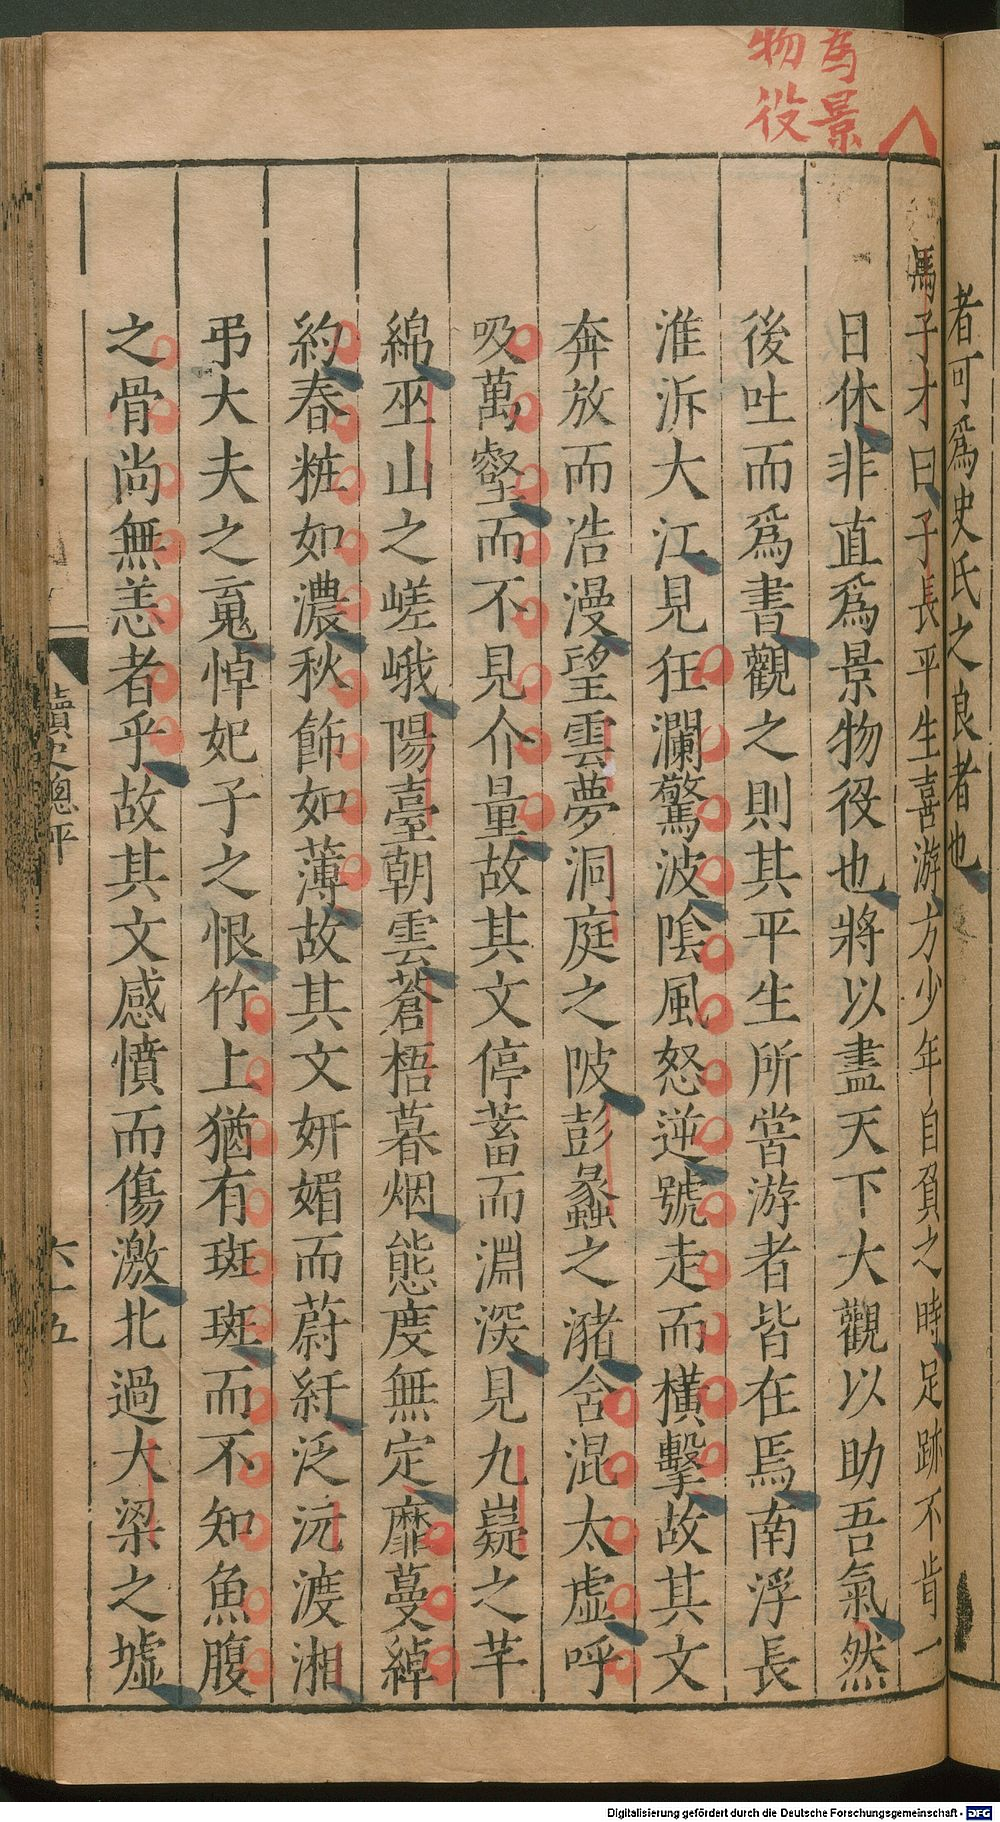 者可爲史氏之良者也
馬子才曰子長平生喜游方少年自負之時足跡不肯一
日休非直爲景物役也將以盡天下大觀以助吾氣然
後吐而爲書觀之則其平生所嘗游者皆在焉南浮長
淮泝大江見狂瀾驚波陰風怒逆號走而橫擊故其文
奔放而浩漫望雲夢洞庭之陂彭蠡之瀦含混太虛呼
吸萬壑而不見介量故其文停蓄而淵深見九嶷之芊
綿巫山之嵯峨陽臺朝雲蒼梧暮烟態度無定靡蔓綽
約春粧如濃秋飾如薄故其文妍媚而蔚紆泛沅渡湘
弔大夫之䰟悼妃子之恨竹上猶有斑斑而不知魚腹
之骨尚無恙者乎故其文感憤而傷激北過大梁之墟
讀史總評
六十五
爲景
物役
Digitalisierung gefördert durch die Deutsche Forschungsgemeinschaft - DFG